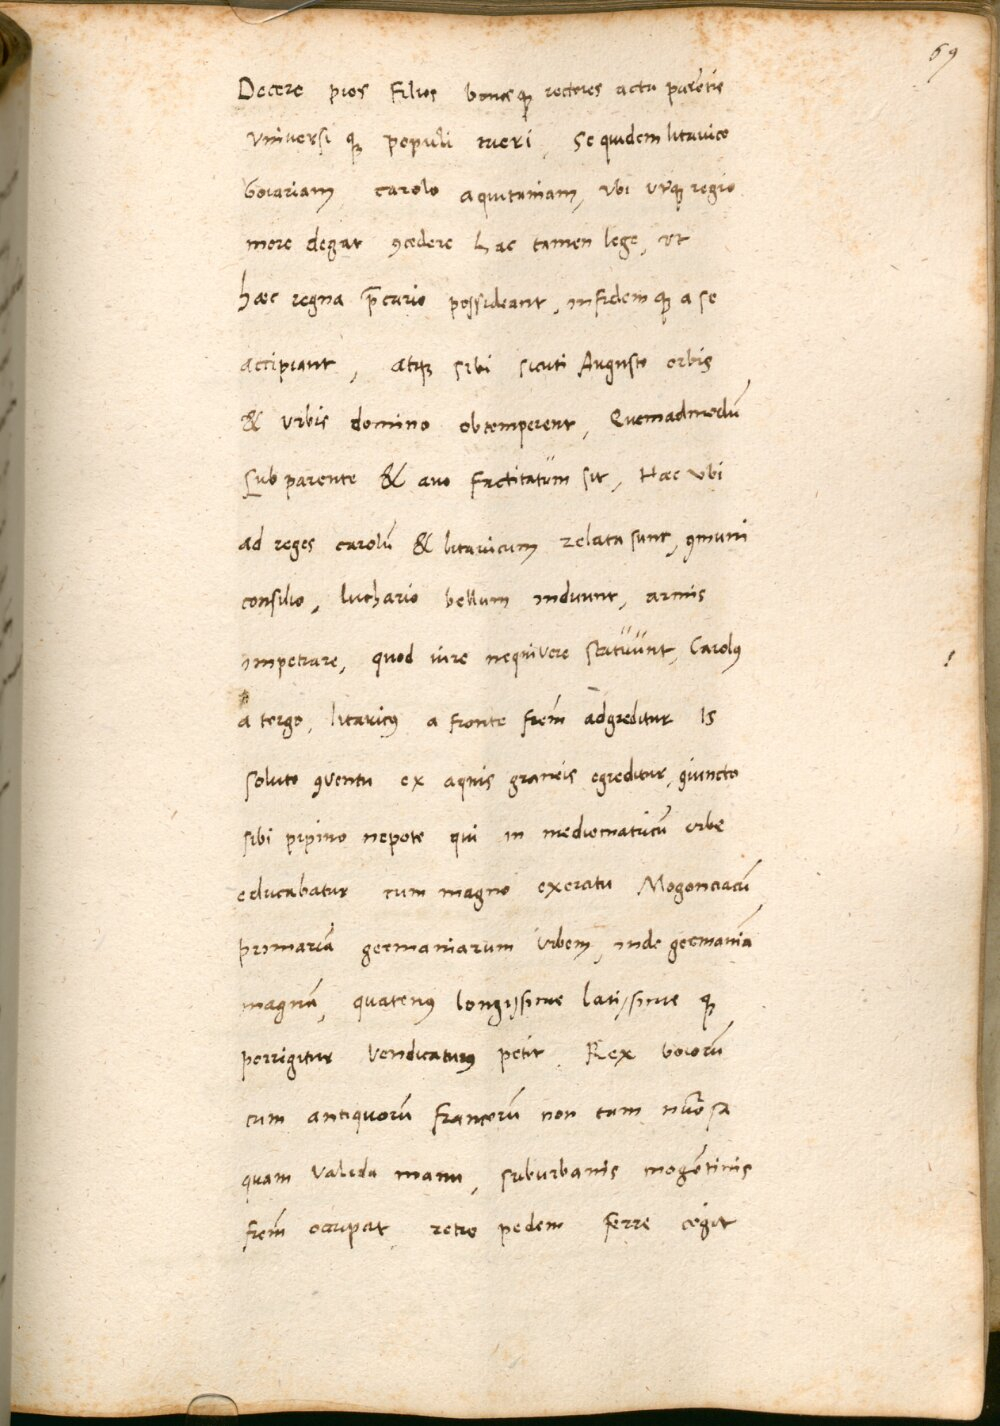 69
Decere pios filios bonosqꝫ rectores acta parētis
Vniversi qꝫ populi tueri, Se quidem litavico
boiariam carolo aquitaniam, vbi vtrqꝫ regio
more degat ꝯcedere hac tamen lege, vt
hæc regna p̄cario possideant, in fidem qꝫ a se
accipiant, atqꝫ sibi sicuti Augusto orbis
& vrbis domino obtemperent, Quemadmodū
Sub parente & auo factitatum sit, Hæc vbi
ad reges carolū & litavicum relata sunt, ꝯmuni
consilio, luthario bellum induunt, armis
impetrare, quod iure nequivere statuunt, Carolꝰ
a tergo, litavicꝰ a fronte frēm adgreditur Is
soluto ꝯventu ex aquis graneis egreditur, ꝯiuncto
sibi pipino nepote qui in mediomatricū vrbe
educabatur cum magno exercitu Mogonciacū
primariā germaniarum vrbem, inde germaniā
magnā, quatenꝰ longissime latissime qꝫ
porrigitur vendicaturꝰ petit. Rex boiorū
cum antiquorū francorū non tam nūosa
quam valida manu, suburbanis mogētinis
frēm occupat retro pedem ferre cogit